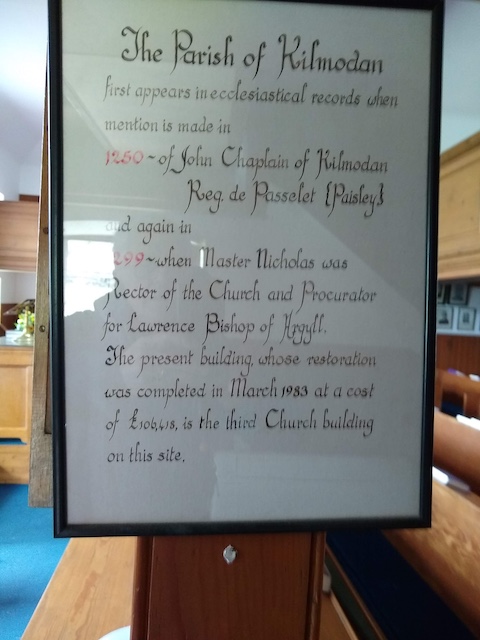 The Parish of Kilmodan
first appears in ecclesiastical records when
mention is made in
1250 ~ of John Chaplain of Kilmodan
Reg. de Passelet {Paisley}
and again in
1299 ~ when Master Nicholas was
Rector of the Church and Procurator
for Lawrence Bishop of Argyll.
The present building, whose restoration
was completed in March 1983 at a cost
of £106,418, is the third Church building
on this site.